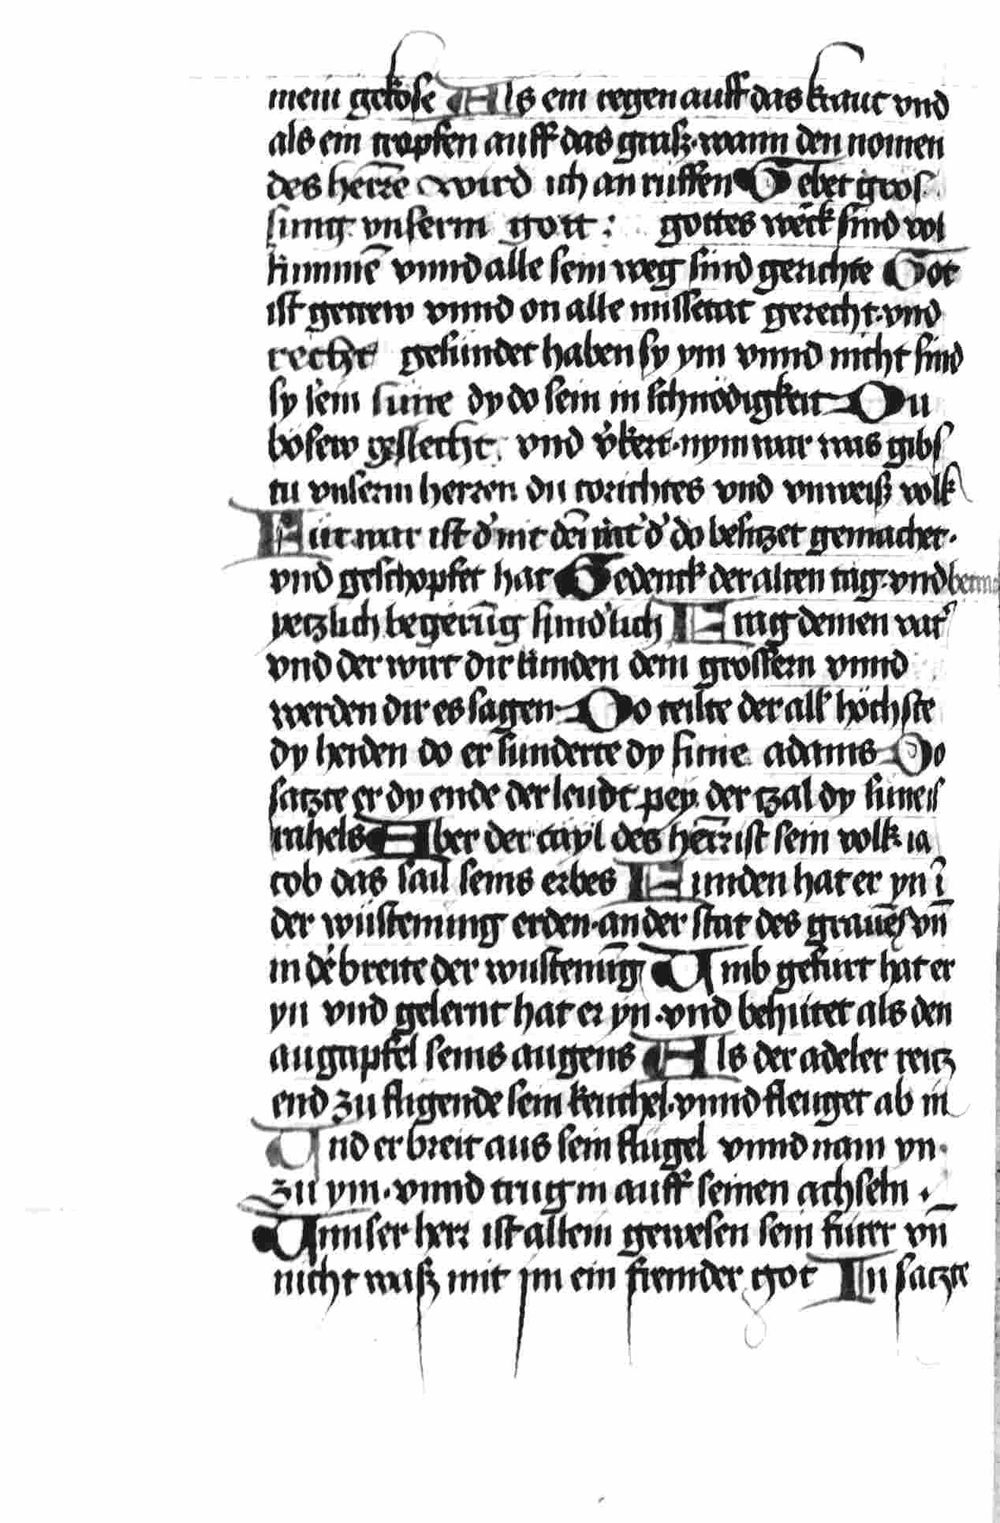 mein gekose Als ein regen auff das kraut vnd
als ein tropfen auff das graß · wann den nomen
des herre͂ wird ich an ruffen Gebet gros
sung vnserm gott : gottes werk sind vol
kumme͂ vnnd alle sein weg sind gerichte Got
ist getrew vnnd on alle missetat gerecht · vnd
recht gesundet haben sy ym vnnd nicht sind
sy sein sune dy do sein in schnodigkeit Du
bosew geslecht vnd v̓kert · nym war was gibs
tu vnserm herren du torichtes vnd vnweiß volk
Fur war ist d̓ nit dei͂ vat̓ d̓ do besitzet gemachet ·
vnd geschopfet hat Gedenck der alten tag · vnd
yetzlich begeru͂g sund̓lich Frag deinen vat̓
vnd der wirt dir kunden dein grossern vnnd
werden dir es sagen Do teilte der all höchste
dy heiden do er sunderte dy sune adams Do
satzte er dy ende der leudt pey der tzal dy sune is
rahels Aber der tayl des herr͂ ist sein volk ia
cob das sail seins erbes Funden hat er yn i͂
der wüstenung erden · an der stat des graue͂s vn͂
in de͂ breite der wustenu͂g Vmb gefurt hat er
yn vnd gelernt hat er yn · vnd behütet als den
augapfel seins augens Als der adeler reitz
end zu fligende sein keuchel · vnnd fleuget ab in
Vnd er breit aus sein flügel vnnd nam yn ·
zu ym · vnnd trug in auff seinen achseln ·
Vnnser herr ist allein gewesen sein furer vn͂
nicht waß mit im ein fremder got In satzte